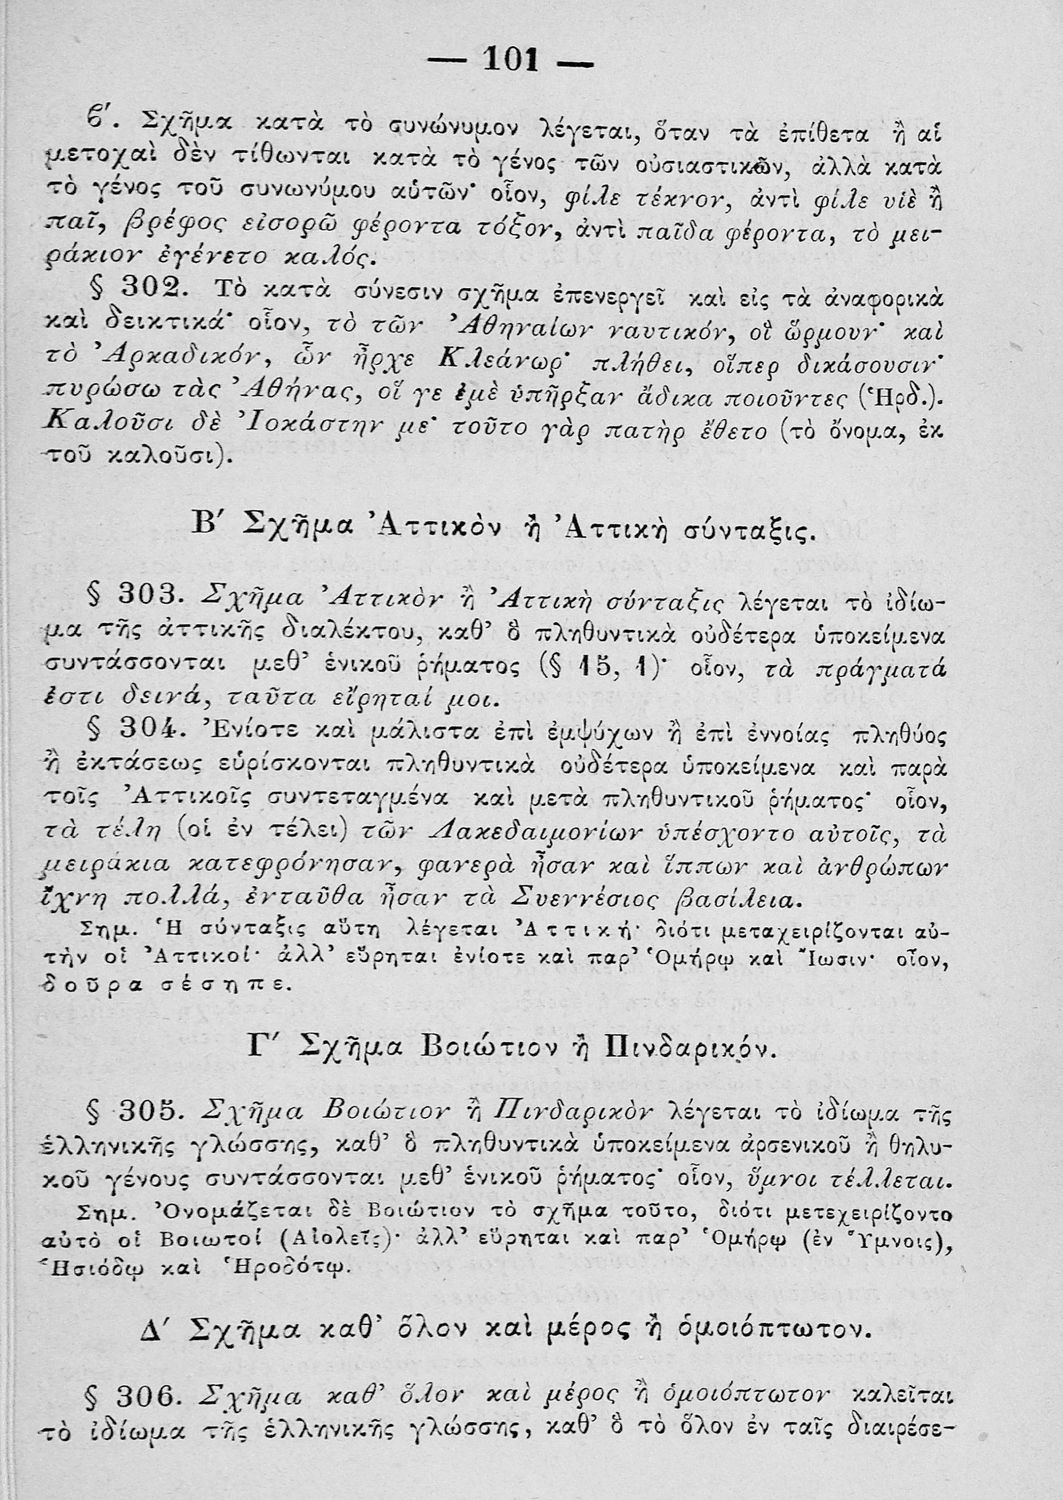 — 101 —
ϐ′. Σχῆμα κατὰ τὸ συνώνυμον λέγεται, ὅταν τὰ ἐπίθετα ἢ αἱ
μετοχαὶ δὲν τίθωνται κατὰ τὸ γένος τῶν οὐσιαστικῶν, ἀλλὰ κατὰ
τὸ γένος τοῦ συνωνύμου αὐτῶν· οἷον, φίλε τέκνον, ἀντὶ φίλε υἱὲ ἢ
παῖ, βρέφος εἰσορῶ φέροντα τόξον, ἀντὶ παῖδα φέροντα, τὸ μει-
ράκιον ἐγένετο καλός.
§ 302. Τὸ κατὰ σύνεσιν σχῆμα ἐπενεργεῖ καὶ εἰς τὰ ἀναφορικὰ
καὶ δεικτικά· οἷον, τὸ τῶν Ἀθηναίων ναυτικόν, οἳ ὥρμουν· καὶ
τὸ Ἀρκαδικόν, ὧν ἦρχε Κλεάνωρ· πλήθει, οἵπερ δικάσουσιν·
πυρώσω τὰς Ἀθήνας, οἵ γε ἐμὲ ὑπῆρξαν ἄδικα ποιοῦντες (Ἡρδ.).
Καλοῦσι δὲ Ἰοκάστην με· τοῦτο γὰρ πατὴρ ἔθετο (τὸ ὄνομα, ἐκ
τοῦ καλοῦσι).
Β′ Σχῆμα Ἀττικὸν ἢ Ἀττικὴ σύνταξις.
§ 303. Σχῆμα Ἀττικὸν ἢ Ἀττικὴ σύνταξις λέγεται τὸ ἰδίω-
μα τῆς ἀττικῆς διαλέκτου, καθ’ ὃ πληθυντικὰ οὐδέτερα ὑποκείμενα
συντάσσονται μεθ’ ἑνικοῦ ῥήματος (§ 15, 1)· οἷον, τὰ πράγματά
ἐστι δεινά, ταῦτα εἴρηταί μοι.
§ 304. Ἐνίοτε καὶ μάλιστα ἐπὶ ἐμψύχων ἢ ἐπὶ ἐννοίας πληθύος
ἢ ἐκτάσεως εὑρίσκονται πληθυντικὰ οὐδέτερα ὑποκείμενα καὶ παρὰ
τοῖς Ἀττικοῖς συντεταγμένα καὶ μετὰ πληθυντικοῦ ῥήματος· οἷον,
τὰ τέλη (οἱ ἐν τέλει) τῶν Λακεδαιμονίων ὑπέσχοντο αὐτοῖς, τὰ
μειράκια κατεφρόνησαν, φανερὰ ἦσαν καὶ ἵππων καὶ ἀνθρώπων
ἴχνη πολλά, ἐνταῦθα ἦσαν τὰ Συεννέσιος βασίλεια.
Σημ. Ἡ σύνταξις αὕτη λέγεται Ἀττική· διότι μεταχειρίζονται αὐ-
τὴν οἱ Ἀττικοί· ἀλλ’ εὕρηται ἐνίοτε καὶ παρ’ Ὁμήρῳ καὶ Ἴωσιν· οἷον,
δοῦρα σέσηπε.
Γ′ Σχῆμα Βοιώτιον ἢ Πινδαρικόν.
§ 305. Σχῆμα Βοιώτιον ἢ Πινδαρικὸν λέγεται τὸ ἰδίωμα τῆς
ἑλληνικῆς γλώσσης, καθ’ ὃ πληθυντικὰ ὑποκείμενα ἀρσενικοῦ ἢ θηλυ-
κοῦ γένους συντάσσονται μεθ’ ἑνικοῦ ῥήματος· οἷον, ὕμνοι τέλλεται.
Σημ. Ὀνομάζεται δὲ Βοιώτιον τὸ σχῆμα τοῦτο, διότι μετεχειρίζοντο
αὐτὸ οἱ Βοιωτοί (Αἰολεῖς)· ἀλλ’ εὕρηται καὶ παρ’ Ὁμήρῳ (ἐν Ὕμνοις),
Ἡσιόδῳ καὶ Ἡροδότῳ.
Δ′ Σχῆμα καθ’ ὅλον καὶ μέρος ἢ ὁμοιόπτωτον.
§ 306. Σχῆμα καθ’ ὅλον καὶ μέρος ἢ ὁμοιόπτωτον καλεῖται
τὸ ἰδίωμα τῆς ἑλληνικῆς γλώσσης, καθ’ ὃ τὸ ὅλον ἐν ταῖς διαιρέσε-